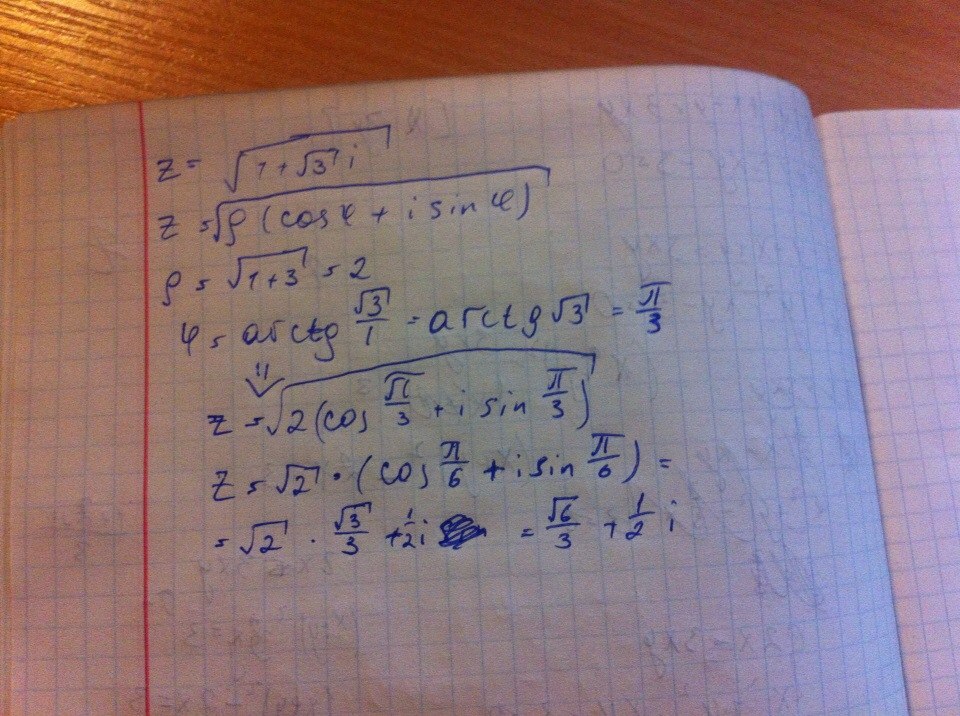 z = √(1 + √3 i)
z = √(ρ (cos φ + i sin φ))
ρ = √(1+3) = 2
φ = arctg √3/1 = arctg √3 = π/3
⇓
z = √(2(cos π/3 + i sin π/3))
z = √2 · (cos π/6 + i sin π/6) =
= √2 · √3/3 + 1/2 i = √6/3 + 1/2 i